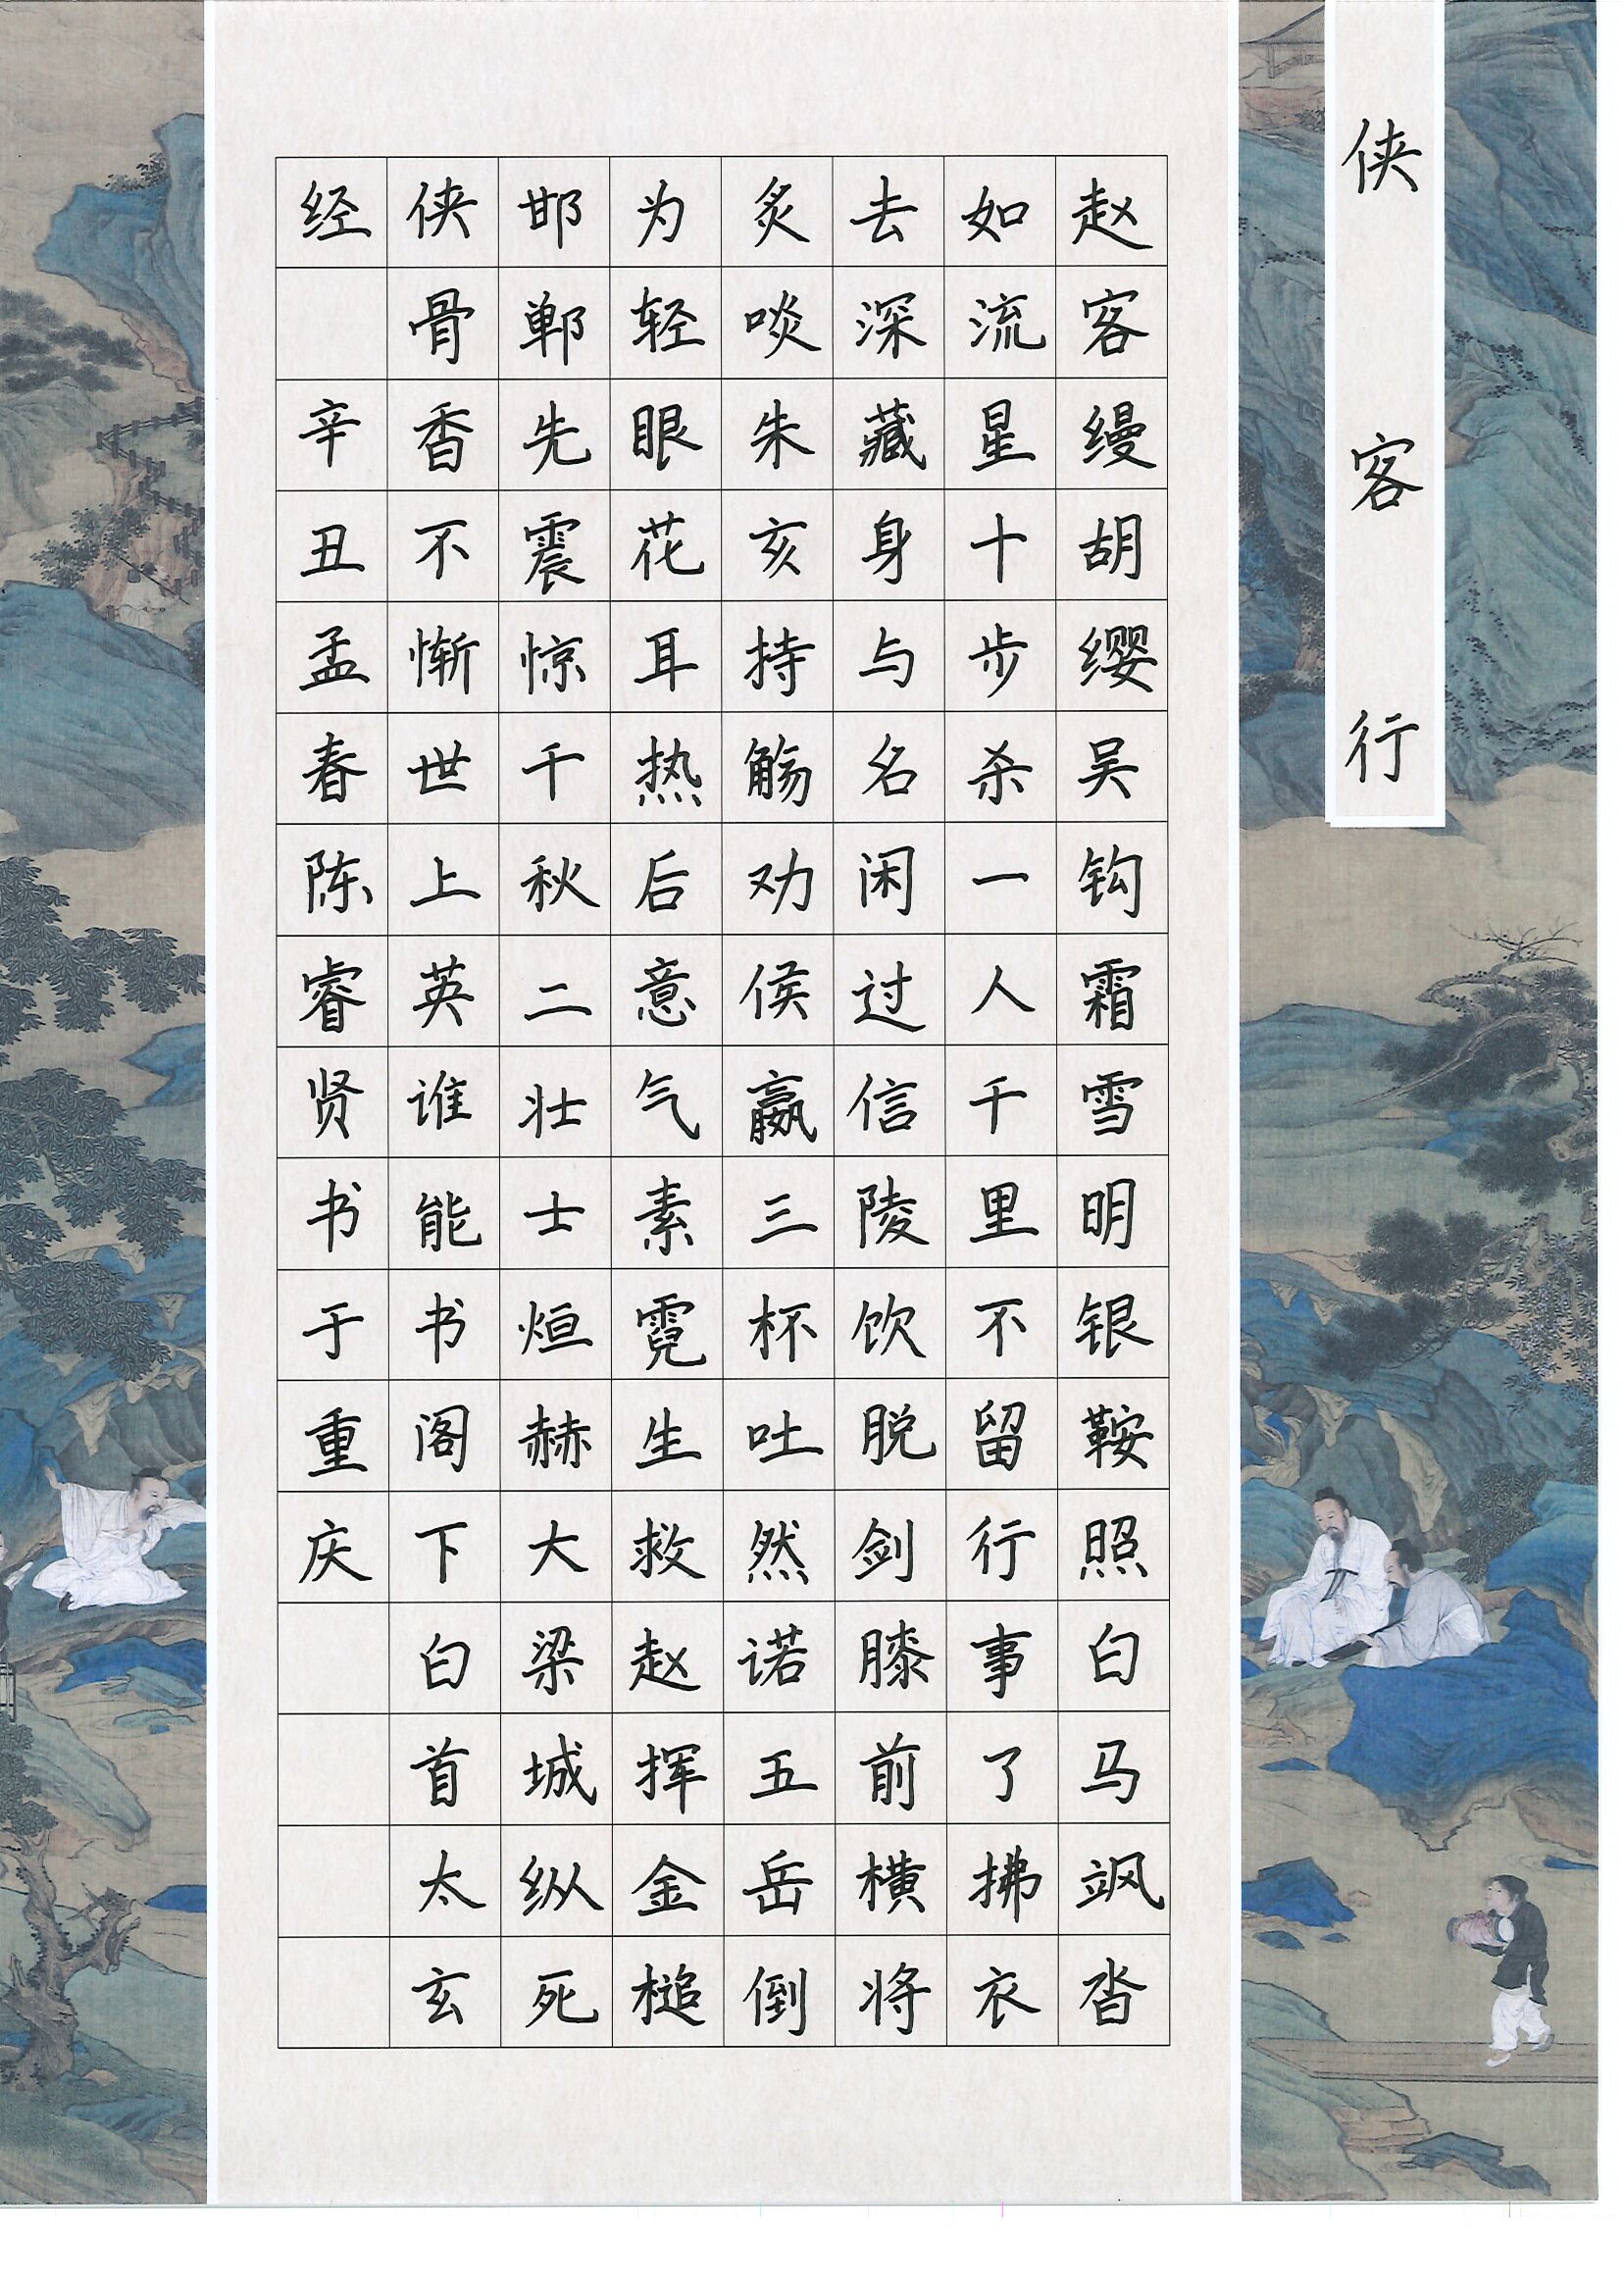 侠客行
赵客缦胡缨吴钩霜雪明银鞍照白马飒沓
如流星十步杀一人千里不留行事了拂衣
去深藏身与名闲过信陵饮脱剑膝前横将
炙啖朱亥持觞劝侯嬴三杯吐然诺五岳倒
为轻眼花耳热后意气素霓生救赵挥金槌
邯郸先震惊千秋二壮士烜赫大梁城纵死
侠骨香不惭世上英谁能书阁下白首太玄
经 辛丑孟春陈睿贤书于重庆